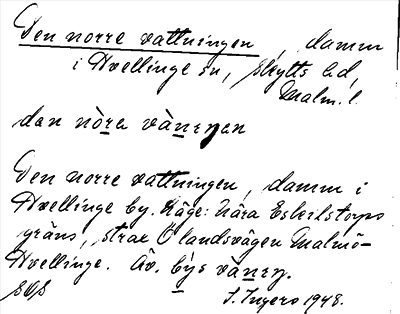 Den norre vattningen, damm
i Hvellinge sn, Skytts hd,
Malm. l.
dən nòrə vànenən
Den norre vattningen, damm i
Hvellinge by. Läge: Nära Eskilstorps
gräns, strax Ö landsvägen Malmö-
Hvellinge. Äv. bỳs vànen.
SOS
I. Ingers 1948.